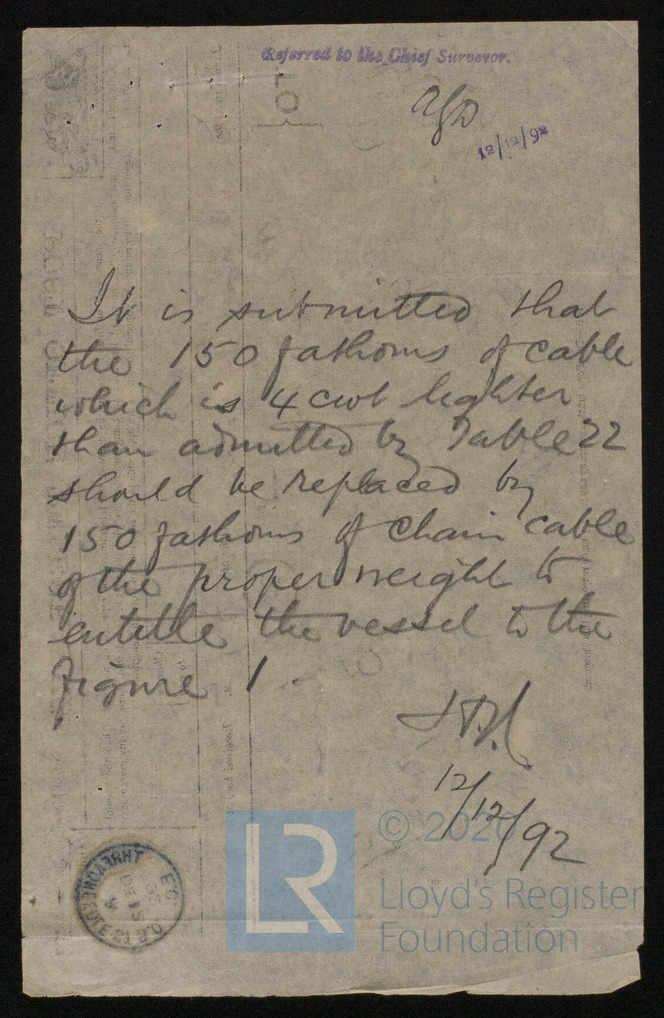 Referred to the Chief Surveyor.
12/12/92
It is submitted that
the 150 fathoms of cable
which is 4 cwt lighter
than admitted by Table 22
should be replaced by
150 fathoms of chain cable
of the proper weight to
entitle the vessel to the
Figure 1.
12/12/92
LR
© 2020
Lloyd's Register
Foundation